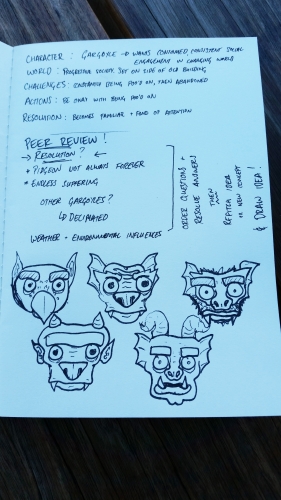 CHARACTER: GARGOYLE → WANTS CONTINUED, CONSISTENT SOCIAL
ENGAGEMENT IN CHANGING WORLD
WORLD: PROGRESSIVE SOCIETY. SET ON SIDE OF OLD BUILDING
CHALLENGES: CONSTANTLY BEING POO'D ON, THEN ABANDONED
ACTIONS: BE OKAY WITH BEING POO'D ON
RESOLUTION: BECOMES FAMILIAR + FOND OF ATTENTION
PEER REVIEW!
→ RESOLUTION? ←
+ PIGEON NOT ALWAYS FOREVER
* ENDLESS SUFFERING
OTHER GARGOYLES?
↳ DILAPIDATED
WEATHER + ENVIRONMENTAL INFLUENCES
ORDER QUESTIONS +
RESOLVE ANSWERS
THEN
REPITCH IDEA
OR NEW CONCEPT
& DRAW IDEA!